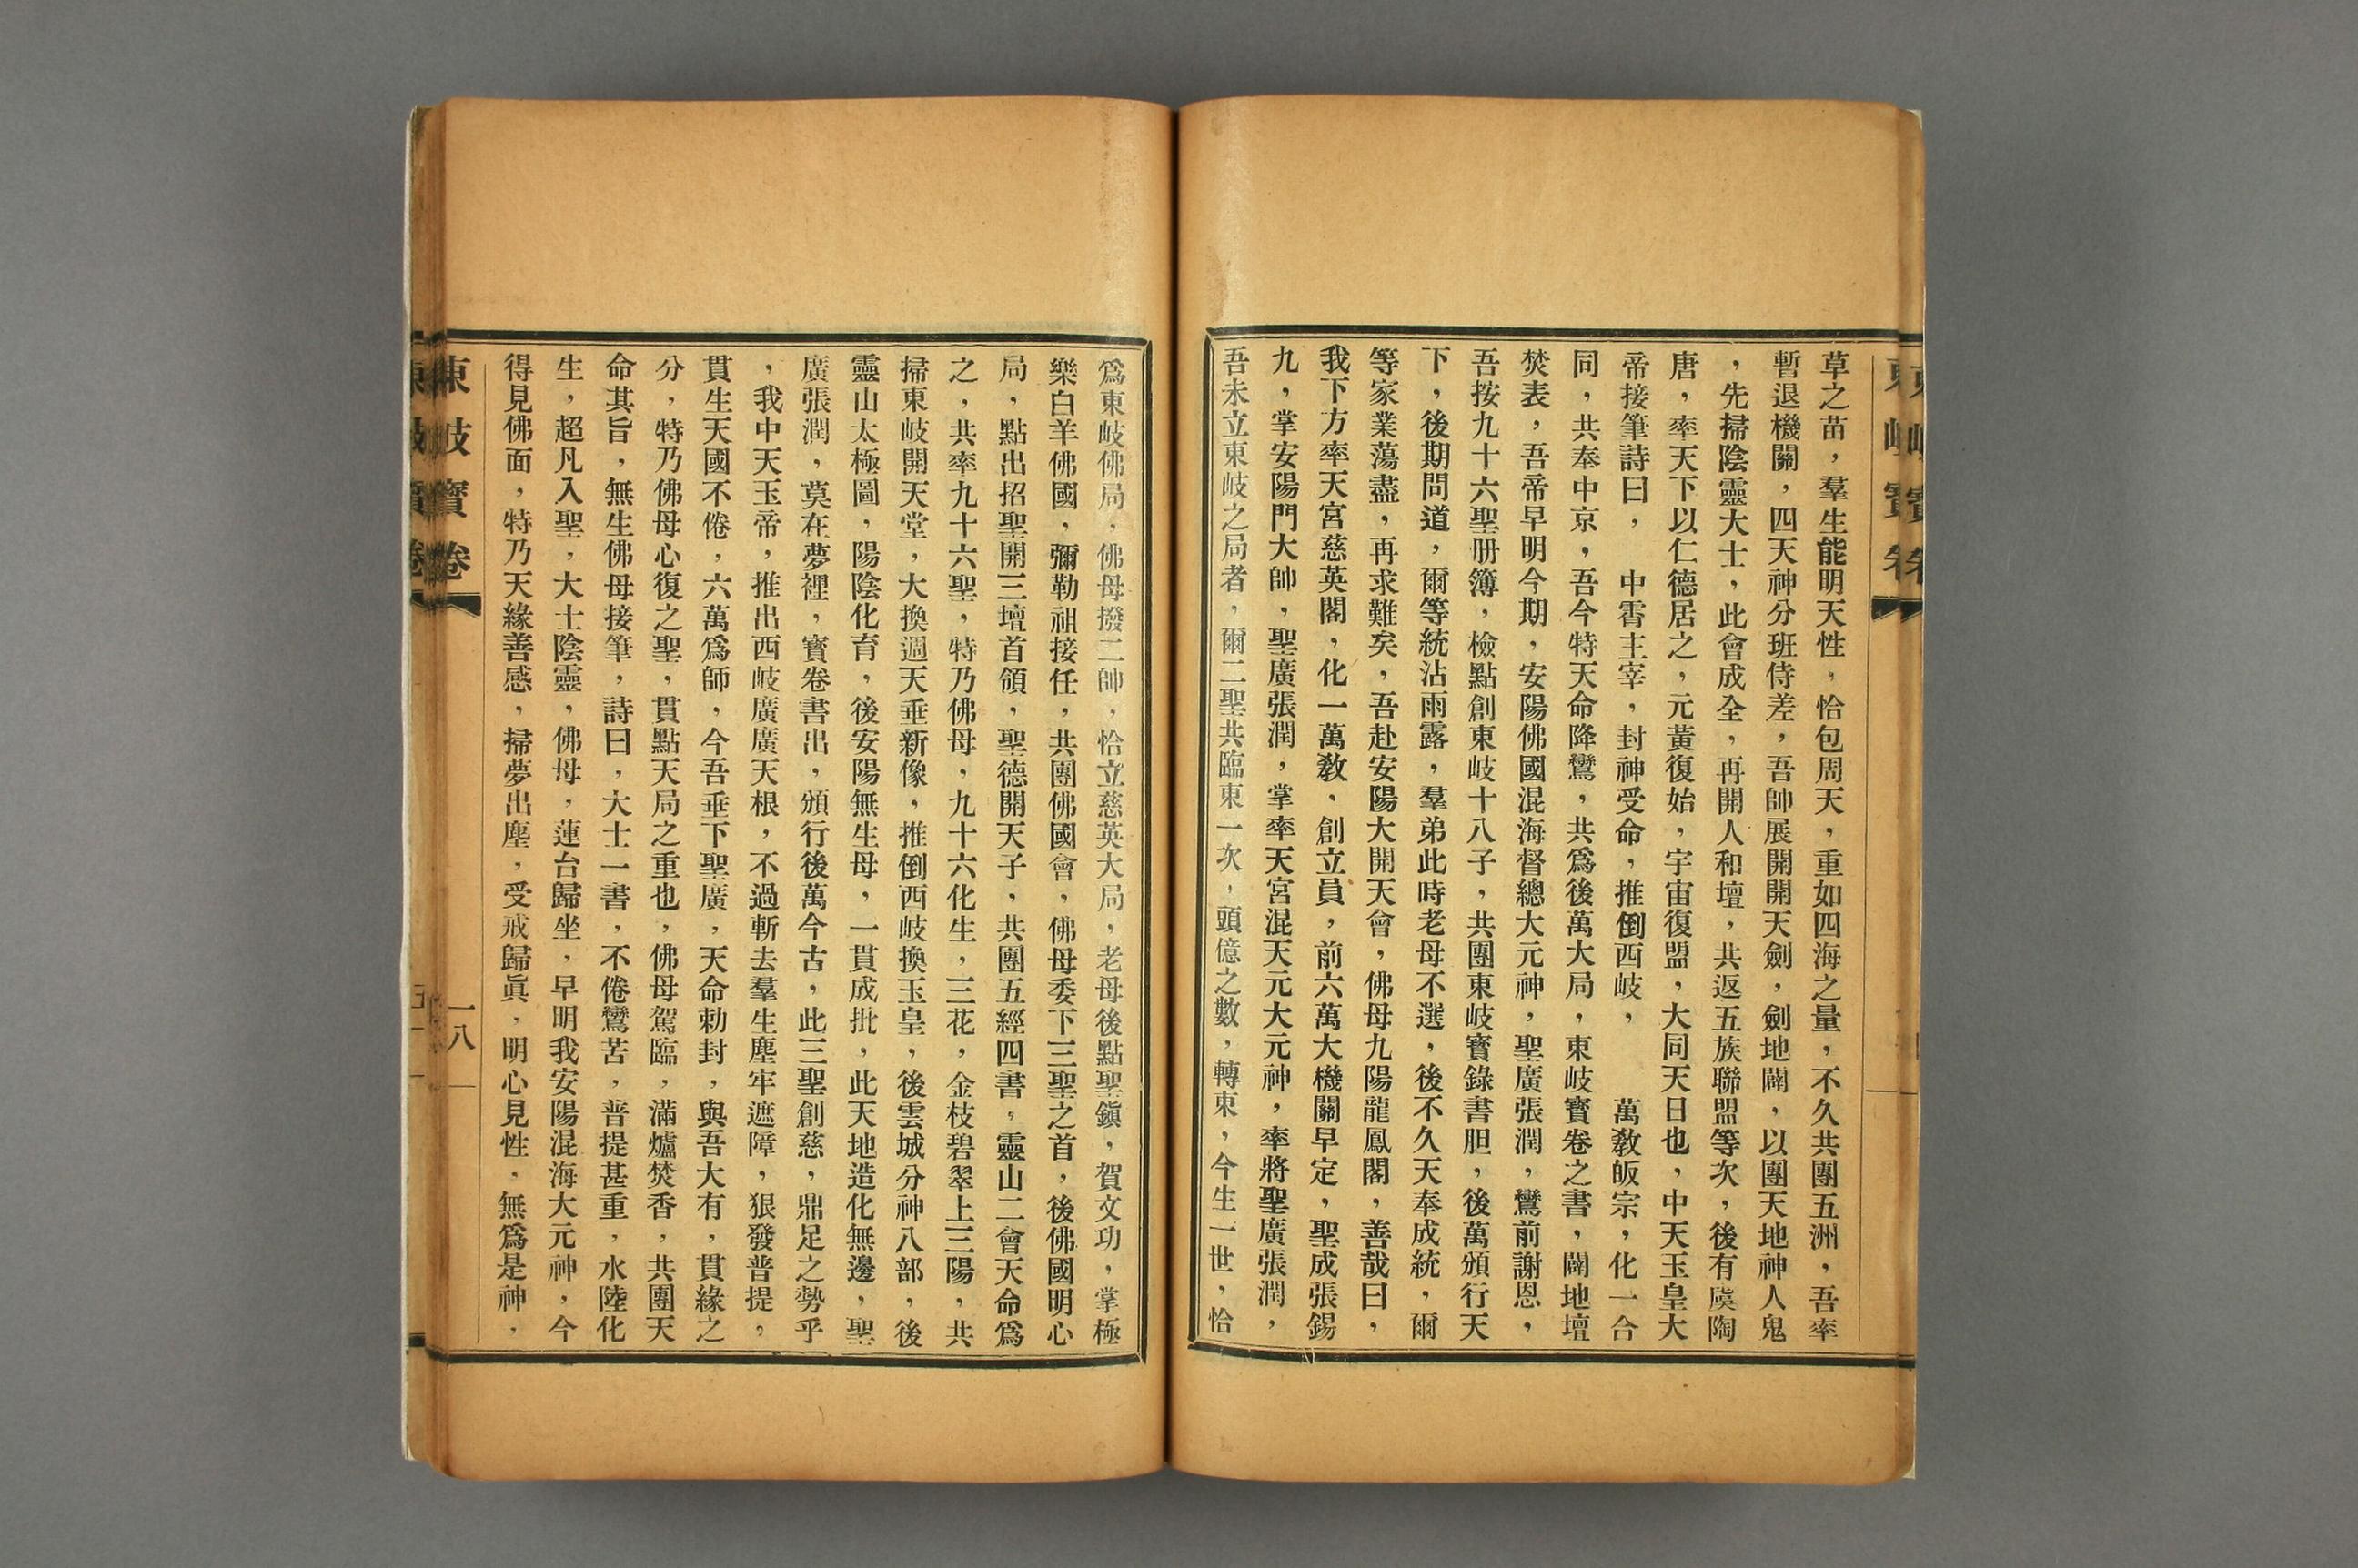 東岐寶卷
草之苗，羣生能明天性，恰包周天，重如四海之量，不久共團五洲，吾率
暫退機關，四天神分班侍差，吾帥展開開天劍，劍地闢，以團天地神人鬼
，先掃陰靈大士，此會成全，再開人和壇，共返五族聯盟等次，後有虞陶
唐，率天下以仁德居之，元黃復始，宇宙復盟，大同天日也，中天玉皇大
帝接筆詩曰，　中霄主宰，封神受命，推倒西岐，　　萬教皈宗，化一合
同，共奉中京，吾今特天命降鸞，共爲後萬大局，東岐寶卷之書，闢地壇
焚表，吾帝早明今期，安陽佛國混海督總大元神，聖廣張潤，鸞前謝恩，
吾按九十六聖册簿，檢點創東岐十八子，共團東岐寶錄書胆，後萬頒行天
下，後期問道，爾等統沾雨露，羣弟此時老母不選，後不久天奉成統，爾
等家業蕩盡，再求難矣，吾赴安陽大開天會，佛母九陽龍鳳閣，善哉曰，
我下方率天宮慈英閣，化一萬教、創立員，前六萬大機關早定，聖成張錫
九，掌安陽門大帥，聖廣張潤，掌率天宮混天元大元神，率將聖廣張潤，
吾未立東岐之局者，爾二聖共臨東一次，頭億之數，轉東，今生一世，恰
爲東岐佛局，佛母撥二帥，恰立慈英大局，老母後點聖鎭，賀文功，掌極
樂白羊佛國，彌勒祖接任，共團佛國會，佛母委下三聖之首，後佛國明心
局，點出招聖開三壇首領，聖德開天子，共團五經四書，靈山二會天命爲
之，共率九十六聖，特乃佛母，九十六化生，三花，金枝碧翠上三陽，共
掃東岐開天堂，大換週天垂新像，推倒西岐換玉皇，後雲城分神八部，後
靈山太極圖，陽陰化育，後安陽無生母，一貫成批，此天地造化無邊，聖
廣張潤，莫在夢裡，寶卷書出，頒行後萬今古，此三聖創慈，鼎足之勢乎
，我中天玉帝，推出西岐廣廣天根，不過斬去羣生塵牢遮障，狠發普提，
貫生天國不倦，六萬爲師，今吾垂下聖廣，天命勅封，與吾大有，貫緣之
分，特乃佛母心復之聖，貫點天局之重也，佛母駕臨，滿爐焚香，共團天
命其旨，無生佛母接筆，詩曰，大士一書，不倦鸞苦，普提甚重，水陸化
生，超凡入聖，大士陰靈，佛母，蓮台歸坐，早明我安陽混海大元神，今
得見佛面，特乃天緣善感，掃夢出塵，受戒歸眞，明心見性，無爲是神，
東岐寶卷
一八